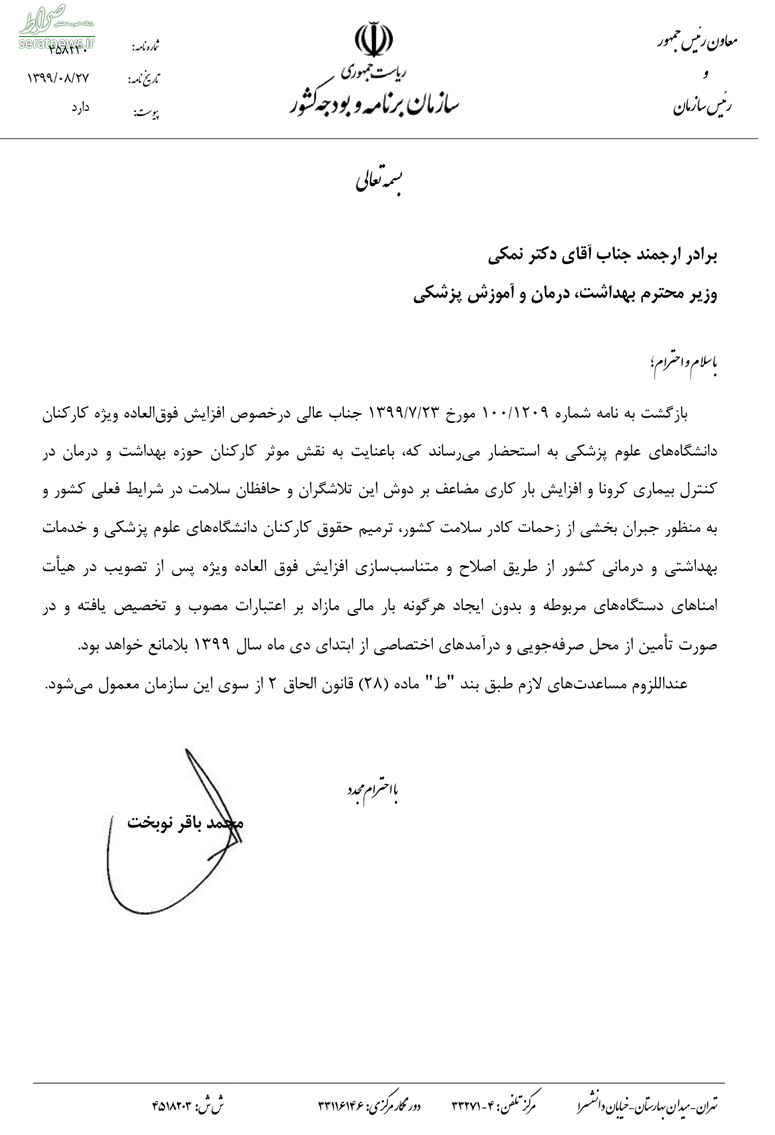 معاون رئیس جمهور
و
رئیس سازمان
ریاست جمهوری
سازمان برنامه و بودجه کشور
صراط
seratnews.ir
شماره نامه:
تاریخ نامه: ۱۳۹۹/۰۸/۲۷
پیوست: دارد
بسمه تعالی
برادر ارجمند جناب آقای دکتر نمکی
وزیر محترم بهداشت، درمان و آموزش پزشکی
با سلام و احترام؛
بازگشت به نامه شماره ۱۰۰/۱۲۰۹ مورخ ۱۳۹۹/۷/۲۳ جناب عالی درخصوص افزایش فوق‌العاده ویژه کارکنان
دانشگاه‌های علوم پزشکی به استحضار می‌رساند که، باعنایت به نقش موثر کارکنان حوزه بهداشت و درمان در
کنترل بیماری کرونا و افزایش بار کاری مضاعف بر دوش این تلاشگران و حافظان سلامت در شرایط فعلی کشور و
به منظور جبران بخشی از زحمات کادر سلامت کشور، ترمیم حقوق کارکنان دانشگاه‌های علوم پزشکی و خدمات
بهداشتی و درمانی کشور از طریق اصلاح و متناسب‌سازی افزایش فوق العاده ویژه پس از تصویب در هیأت
امناهای دستگاه‌های مربوطه و بدون ایجاد هرگونه بار مالی مازاد بر اعتبارات مصوب و تخصیص یافته و در
صورت تأمین از محل صرفه‌جویی و درآمدهای اختصاصی از ابتدای دی ماه سال ۱۳۹۹ بلامانع خواهد بود.
عنداللزوم مساعدت‌های لازم طبق بند "ط" ماده (۲۸) قانون الحاق ۲ از سوی این سازمان معمول می‌شود.
با احترام مجدد
محمد باقر نوبخت
تهران-میدان بهارستان-خیابان دانشسرا مرکز تلفن: ۴-۳۳۲۷۱ دورنگار مرکزی: ۳۳۱۱۶۱۴۶ ش ش: ۴۵۱۸۲۰۳